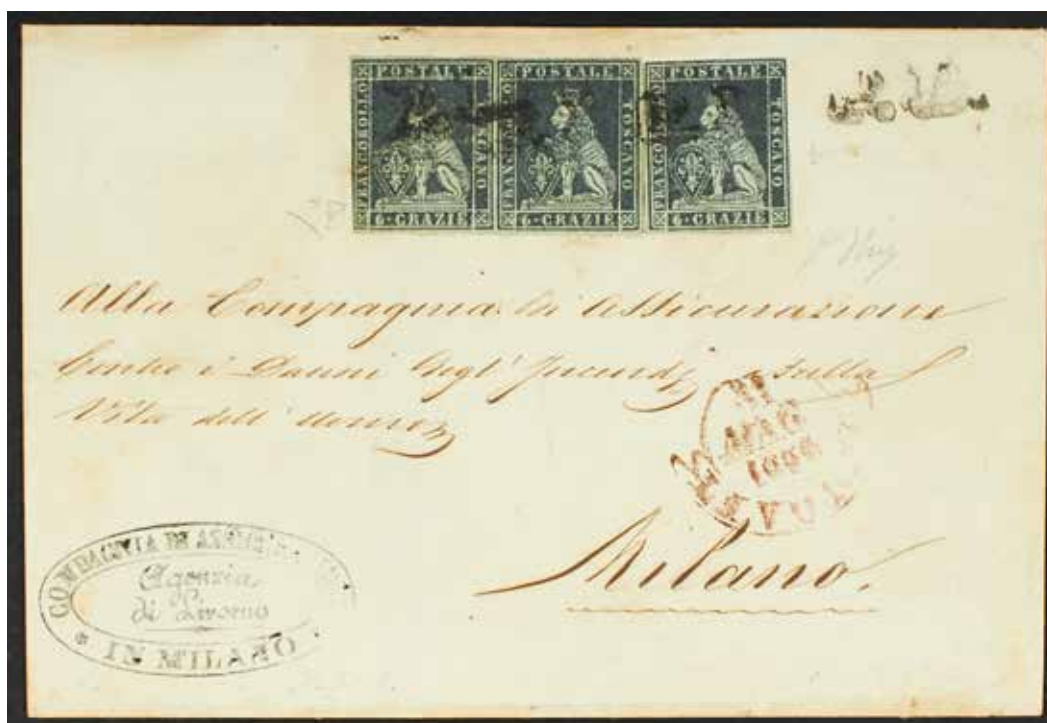 POSTALE
FRANCOBOLLO
TOSCANO
6·CRAZIE
POSTALE
FRANCOBOLLO
TOSCANO
6·CRAZIE
POSTALE
FRANCOBOLLO
TOSCANO
6·CRAZIE
Alla Compagnia di Assicurazione
Contro i Danni degl' Incendj e sulla
Vita dell' Uomo
MAG
Milano.
COMPAGNIA DI
Agenzia
di Livorno
IN MILANO